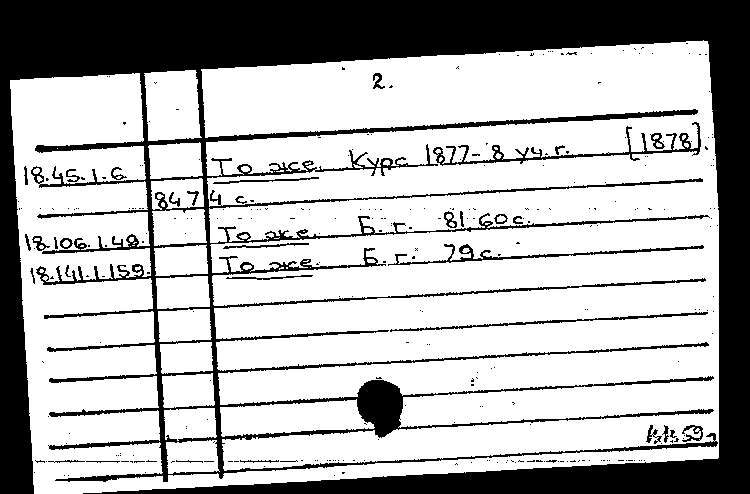 2.
18.45.1.6 То же. Курс 1877-8 уч. г. [1878].
84,74 с.
18.106.1.49. То же. Б. г. 81,60 с.
18.141.1.159. То же. Б. г. 79 с.